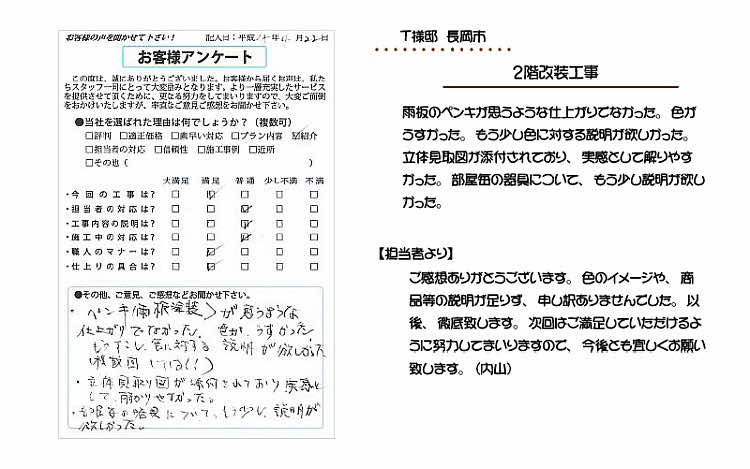 お客様の声を聞かせて下さい！ 記入日：平成 年 月22日
お客様アンケート
この度は、誠にありがとうございました。お客様から届くお声は、私た
ちスタッフ一同にとって大変励みとなります。より一層充実したサービス
を提供させて頂くために、更なる努力をしてまいりますので、大変ご面倒
をおかけいたしますが、率直なご意見ご感想をお聞かせ下さい。
●当社を選ばれた理由は何でしょうか？（複数可）
□評判 □適正価格 □素早い対応 □プラン内容 ☑紹介
□担当者の対応 □信頼性 □施工事例 □近所
□その他（ ）
大満足 満足 普通 少し不満 不満
・今回の工事は？ □ ☑ □ □ □
・担当者の対応は？ □ □ ☑ □ □
・工事内容の説明は？ □ □ ☑ □ □
・施工中の対応は？ □ □ ☑ □ □
・職人のマナーは？ □ ☑ □ □ □
・仕上りの具合は？ □ ☑ □ □ □
●その他、ご意見、ご感想などお聞かせ下さい。
・ペンキ（雨板塗装）が思うような
仕上がりでなかった。色が、うすかった
もう少し、色に対する説明が欲しかった
・立体見取り図が添付されており実感と
して、解かりやすかった。
・部屋毎の器具について、もう少し、説明が
欲しかった。
T様邸 長岡市
2階改装工事
雨板のペンキが思うような仕上がりでなかった。色が
うすかった。もう少し色に対する説明が欲しかった。
立体見取図が添付されており、実感として解りやす
かった。部屋毎の器具について、もう少し説明が欲し
かった。
【担当者より】
ご感想ありがとうございます。色のイメージや、商
品等の説明が足りず、申し訳ありませんでした。以
後、徹底致します。次回はご満足していただけるよ
うに努力してまいりますので、今後とも宜しくお願い
致します。（内山）